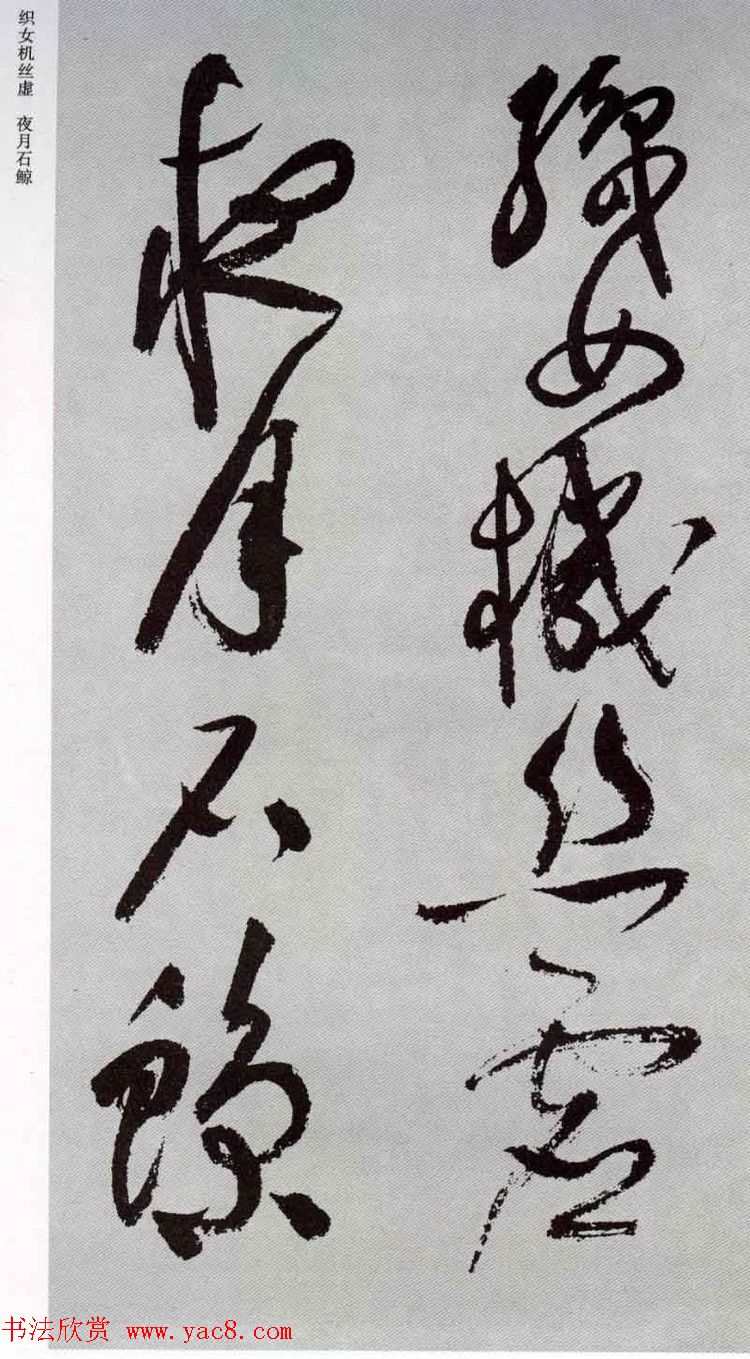 織女機絲虛
夜月石鯨
织女机丝虚 夜月石鲸
书法欣赏 www.yac8.com